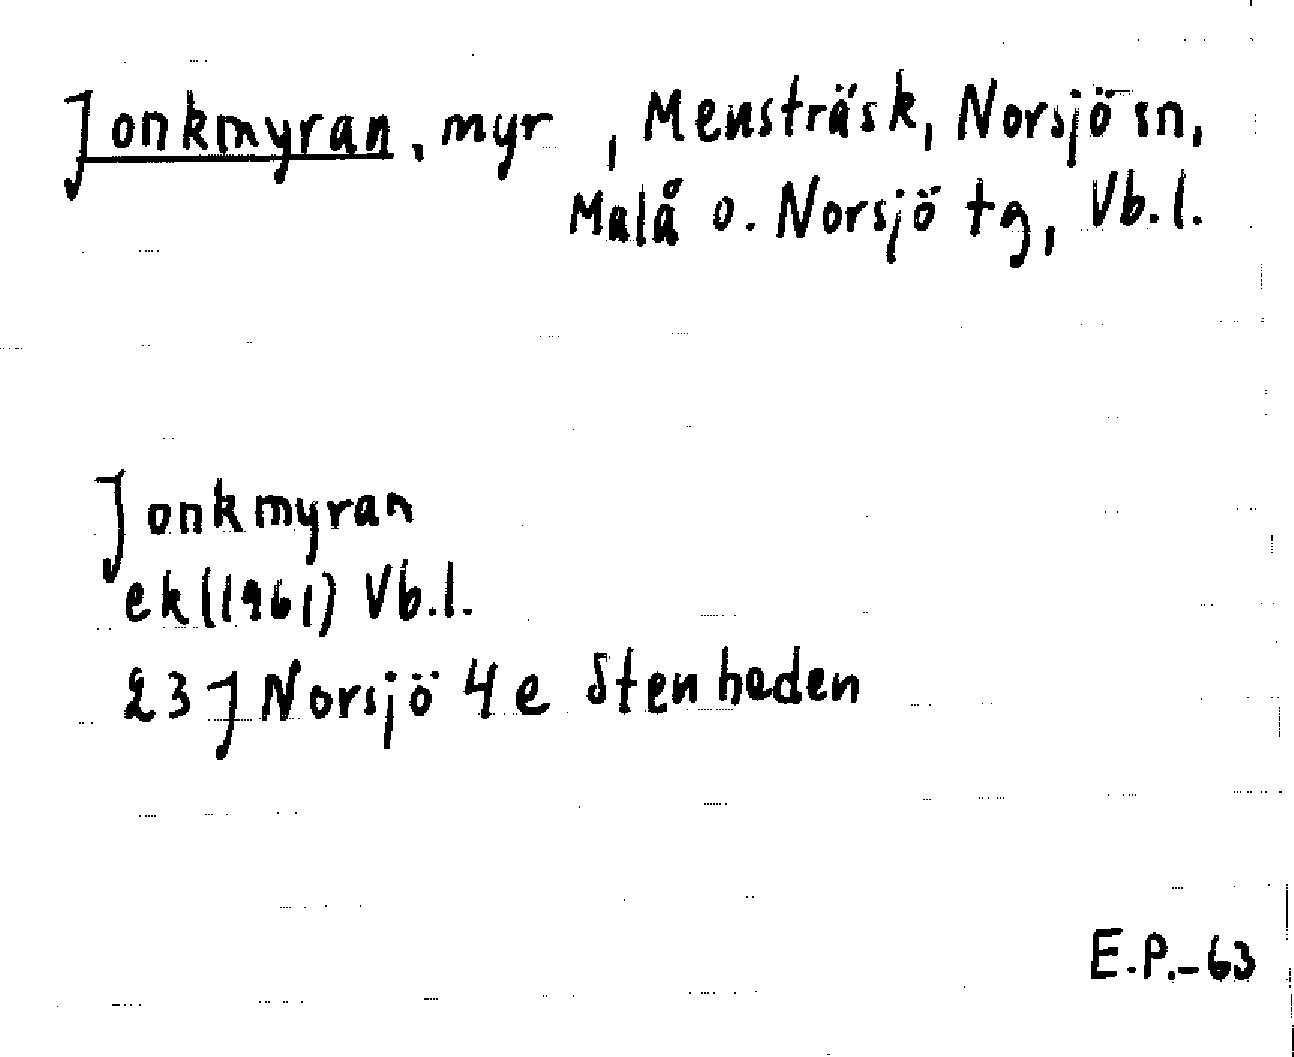 Jonkmyran, myr, Mensträsk, Norsjö sn,
Malå o. Norsjö tg, Vb.l.
Jonkmyran
ek(1961) Vb.l.
23J Norsjö 4e Stenheden
E.P.-63